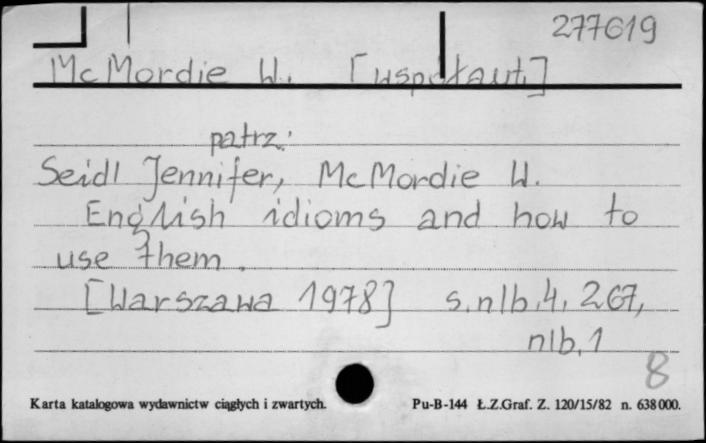 277619
McMordie W. [współaut.]
patrz:
Seidl Jennifer, McMordie W.
English idioms and how to
use them.
[Warszawa 1978] s. nlb. 4, 267,
nlb. 1
8
Karta katalogowa wydawnictw ciągłych i zwartych. Pu-B-144 Ł.Z.Graf. Z. 120/15/82 n. 638 000.